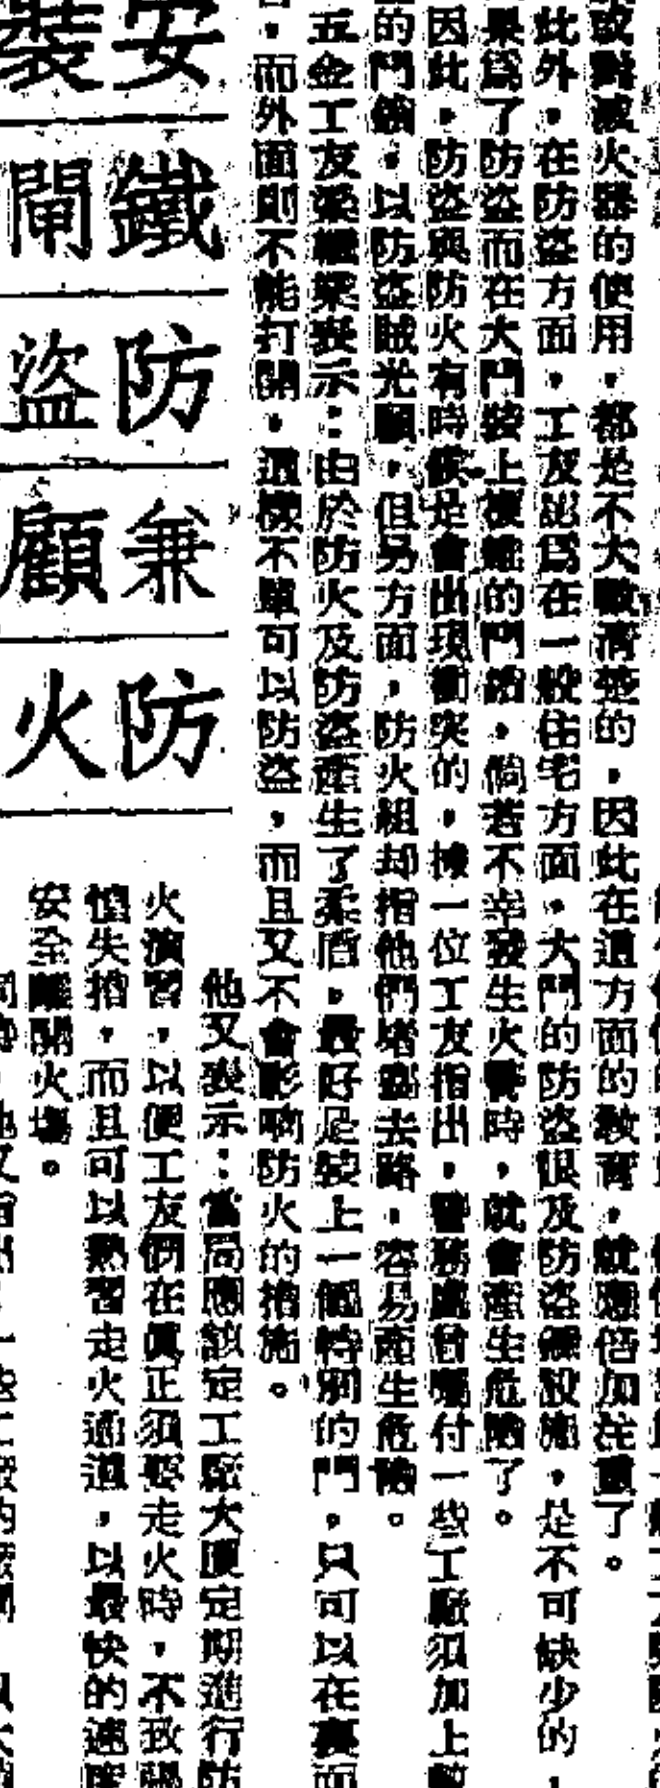 或對滅火器的使用，都是不大數清楚的，因此在這方面的教育，就應倍加注重了。
此外，在防盜方面，工友認爲在一般住宅方面，大門的防盜眼及防盜鏈設施，是不可缺少的，
果爲了防盜而在大門裝上複雜的門鎖，倘若不幸發生火警時，就會產生危險了。
因此，防盜與防火有時候是會出現衝突的，據一位工友指出，警務處曾囑付一些工廠須加上
的門鎖，以防盜賊光顧，但另方面，防火組却指他們堵塞去路，容易產生危險。
五金工友梁權燊表示：由於防火及防盜產生了矛盾，最好是裝上一個特別的門，只可以在裏面
，而外面則不能打開，這樣不單可以防盜，而且又不會影响防火的措施。
安裝
鐵閘
防盜
兼顧
防火
他又表示：當局應該定工廠大厦定期進行防
火演習，以便工友們在眞正須要走火時，不致
惶失措，而且可以熟習走火通道，以最快的速度
安全離開火塲。